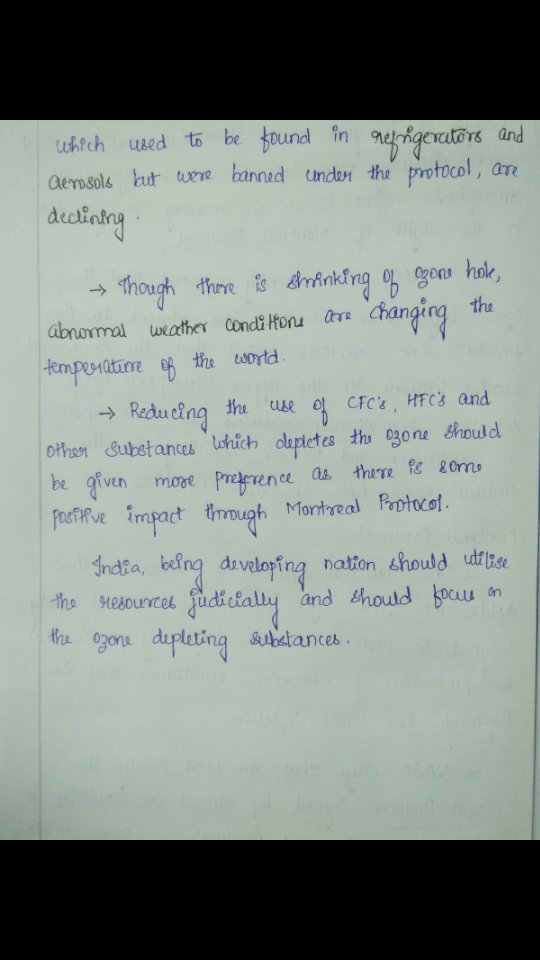 which used to be found in refrigerators and
aerosols but were banned under the protocol, are
declining.
→ Though there is shrinking of ozone hole,
abnormal weather conditions are changing the
temperature of the world.
→ Reducing the use of CFC's, HFC's and
other substances which depletes the ozone should
be given more preference as there is some
positive impact through Montreal Protocol.
India, being developing nation should utilise
the resources judicially and should focus on
the ozone depleting substances.